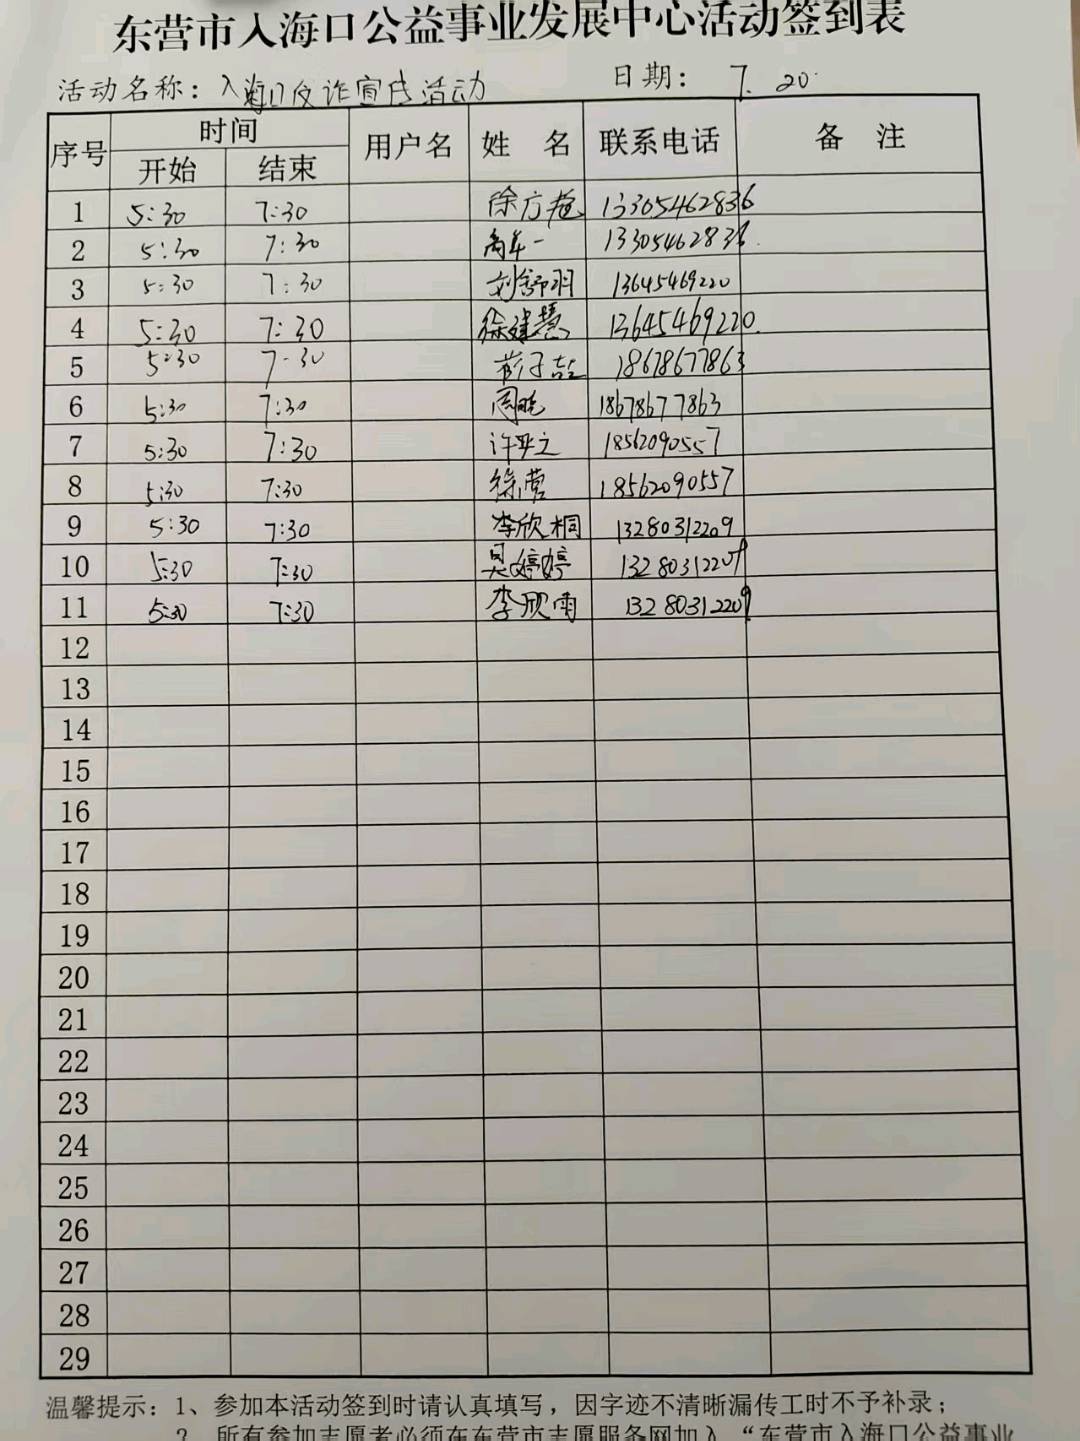 东营市入海口公益事业发展中心活动签到表
活动名称：入海口反诈宣传活动 日期：7.20
序号 时间 用户名 姓 名 联系电话 备 注
开始 结束
1 5:30 7:30 徐广苑 13305462836
2 5:30 7:30 13305462836
3 5:30 7:30 刘舒羽 13645469220
4 5:30 7:30 徐建慧 13645469220
5 5:30 7:30 彭子喆 18678677863
6 5:30 7:30 周晓 18678677863
7 5:30 7:30 许平之 18562090557
8 5:30 7:30 徐营 18562090557
9 5:30 7:30 李欣桐 13280312209
10 5:30 7:30 吴婷婷 13280312209
11 5:30 7:30 李欣雨 13280312209
12
13
14
15
16
17
18
19
20
21
22
23
24
25
26
27
28
29
温馨提示：1、参加本活动签到时请认真填写，因字迹不清晰漏传工时不予补录；
2、所有参加志愿者必须在东营市志愿服务网加入“东营市入海口公益事业